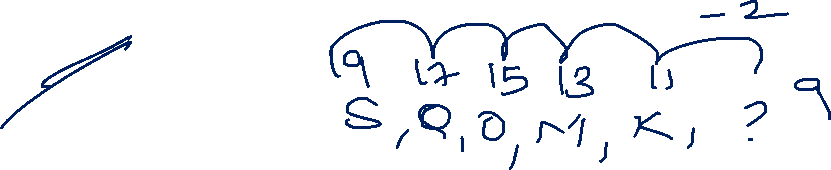 -2
19 17 15 13 11 9
S, Q, O, M, K, ?